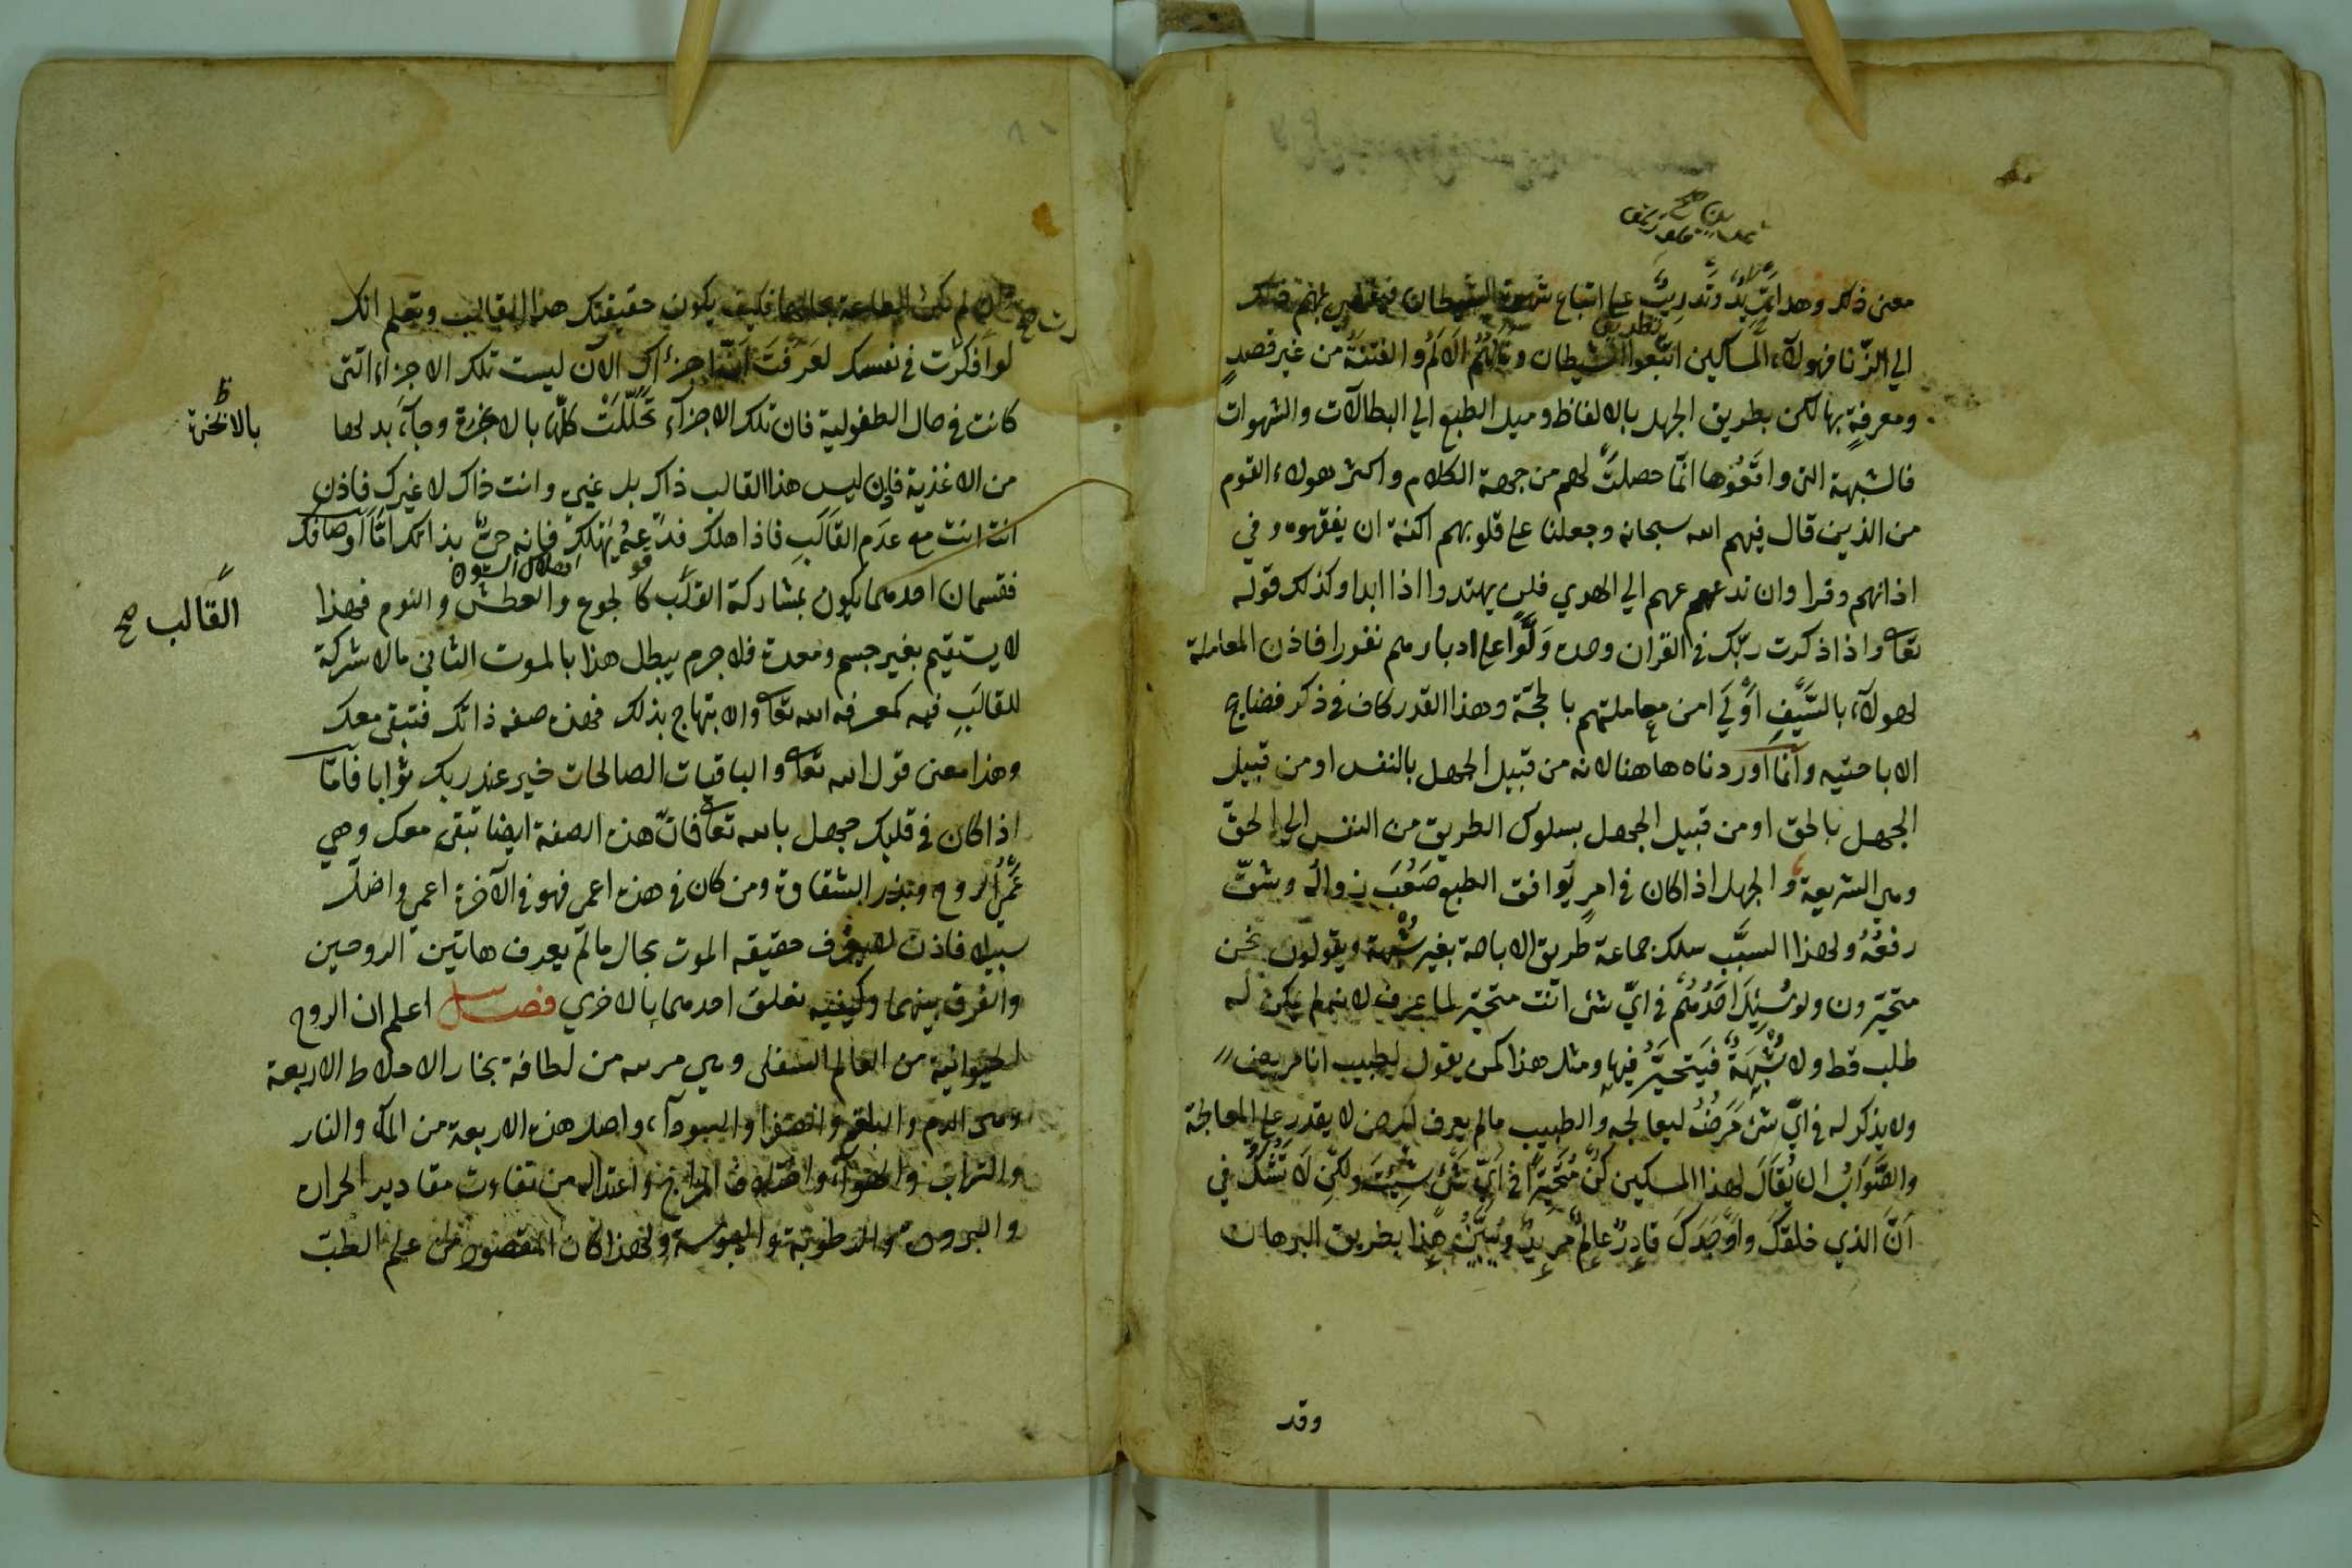 معنى ذلك وهذا تمهيد وتدريب على اتباع شهوة الشيطان
الي الزنا فهولآء المساكين اتبعوا الشيطان ونالهم الالم والفتنة من غير قصد
ومعرفة بها لكن بطريق الجهل بالالفاظ وميل الطبع الي البطالات والشهوات
فالشبهة التى واقعوها انما حصلت لهم من جهة الكلام واكثر هولاء القوم
من الذين قال فيهم الله سبحانه وجعلنا على قلوبهم اكنة ان يفقهوه وفي
اذانهم وقرا وان تدعهم الي الهدي فلن يهتدوا اذا ابدا وكذلك قوله
تعا واذا ذكرت ربك في القران وحده ولوا على ادبارهم نفورا فاذن المعاملة
لهولآء بالسيف اولي من معاملتهم بالحجة وهذا القدر كاف في ذكر فضايح
الاباحتيه وانما اوردناه هاهنا لانه من قبيل الجهل بالنفس او من قبيل
الجهل بالحق او من قبيل الجهل بسلوك الطريق من النفس الي الحق
وهي الشريعة والجهل اذا كان في امر يوافق الطبع صعب زواله وشق
رفعه ولهذا السبب سلك جماعة طريق الاباحة بغير شبهة ويقولون نحن
متحيرون ولو سئل احدهم في اي شئ انت متحير لما عرف لانه لم يكن له
طلب قط ولا شبهة فيتحير فيها ومثل هذا كمن يقول لطبيب انا مريض
ولا يذكر له في اي شئ مرضه ليعالجه والطبيب مالم يعرف المرض لا يقدر على المعالجة
والصواب ان يقال لهذا المسكين كن متحيرا في اي شئ شئت ولكن لا تشك في
ان الذي خلقك واوجدك قادر عالم مريد ونبين هذا بطريق البرهان
وقد
فكيف يكون حقيقتك هذا القالب وتعلم انك
لو افكرت في نفسك لعرفت ان اجزأك الآن ليست تلك الاجزاء التى
كانت في حال الطفولية فان تلك الاجزآء تحللت كلها بالابخرة وجآء بدلها
بالابخرة
من الاغذية فاذن ليس هذا القالب ذاك بل غيره وانت ذاك لا غيرك فاذن
انت انت مع عدم القالب فاذا هلك فدعه يهلك فانه حي بذاتك اما اوصافك
فقسمان احدهما يكون بمشاركة القلب كالجوع والعطش والنوم فهذا
القالب صح
لا يستقيم بغير جسم ومعدة فلا جرم يبطل هذا بالموت الثاني مالا شركة
للقالب فيه كمعرفه الله تعا والابتهاج بذلك فهذه صفه ذاتك فتبقى معك
وهذا معنى قول الله تعا والباقيات الصالحات خير عند ربك ثوابا فاما
اذا كان في قلبك جهل بالله تعا فان هذه الصفة ايضا تبقى معك وهي
عمى الروح وبذر الشقاوة ومن كان في هذه اعمى فهو في الآخرة اعمى واضل
سبيلا فاذن لا يعرف حقيقه الموت بحال مالم يعرف هاتين الروحين
والفرق بينهما وكيفيه تعلق احدهما بالاخري فصل اعلم ان الروح
الحيوانية من العالم السفلى وهي مركبه من لطافة بخار الاخلاط الاربعة
وهى الدم والبلغم والصفرا والسودآء واصل هذه الاربعة من المآء والنار
والتراب والهوآء واختلاف المزاج واعتداله من تفاوت مقادير الحراره
والبروده والرطوبة واليبوسة ولهذا كان المقصود من علم الطب